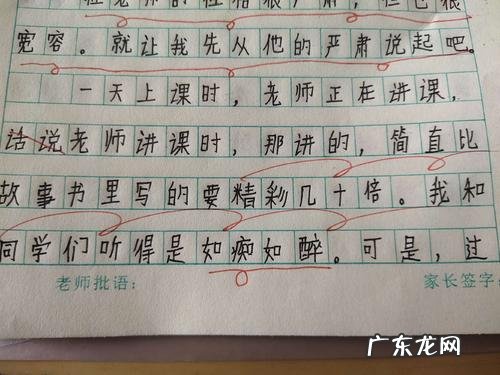 粒老师的性格很严肃，但也很
宽容。就让我先从他的严肃说起吧。
一天上课时，老师正在讲课，
话说老师讲课时，那讲的，简直比
故事书里写的要精彩几十倍。我和
同学们听得是如痴如醉。可是，过
老师批语：
家长签字：
广东龙网